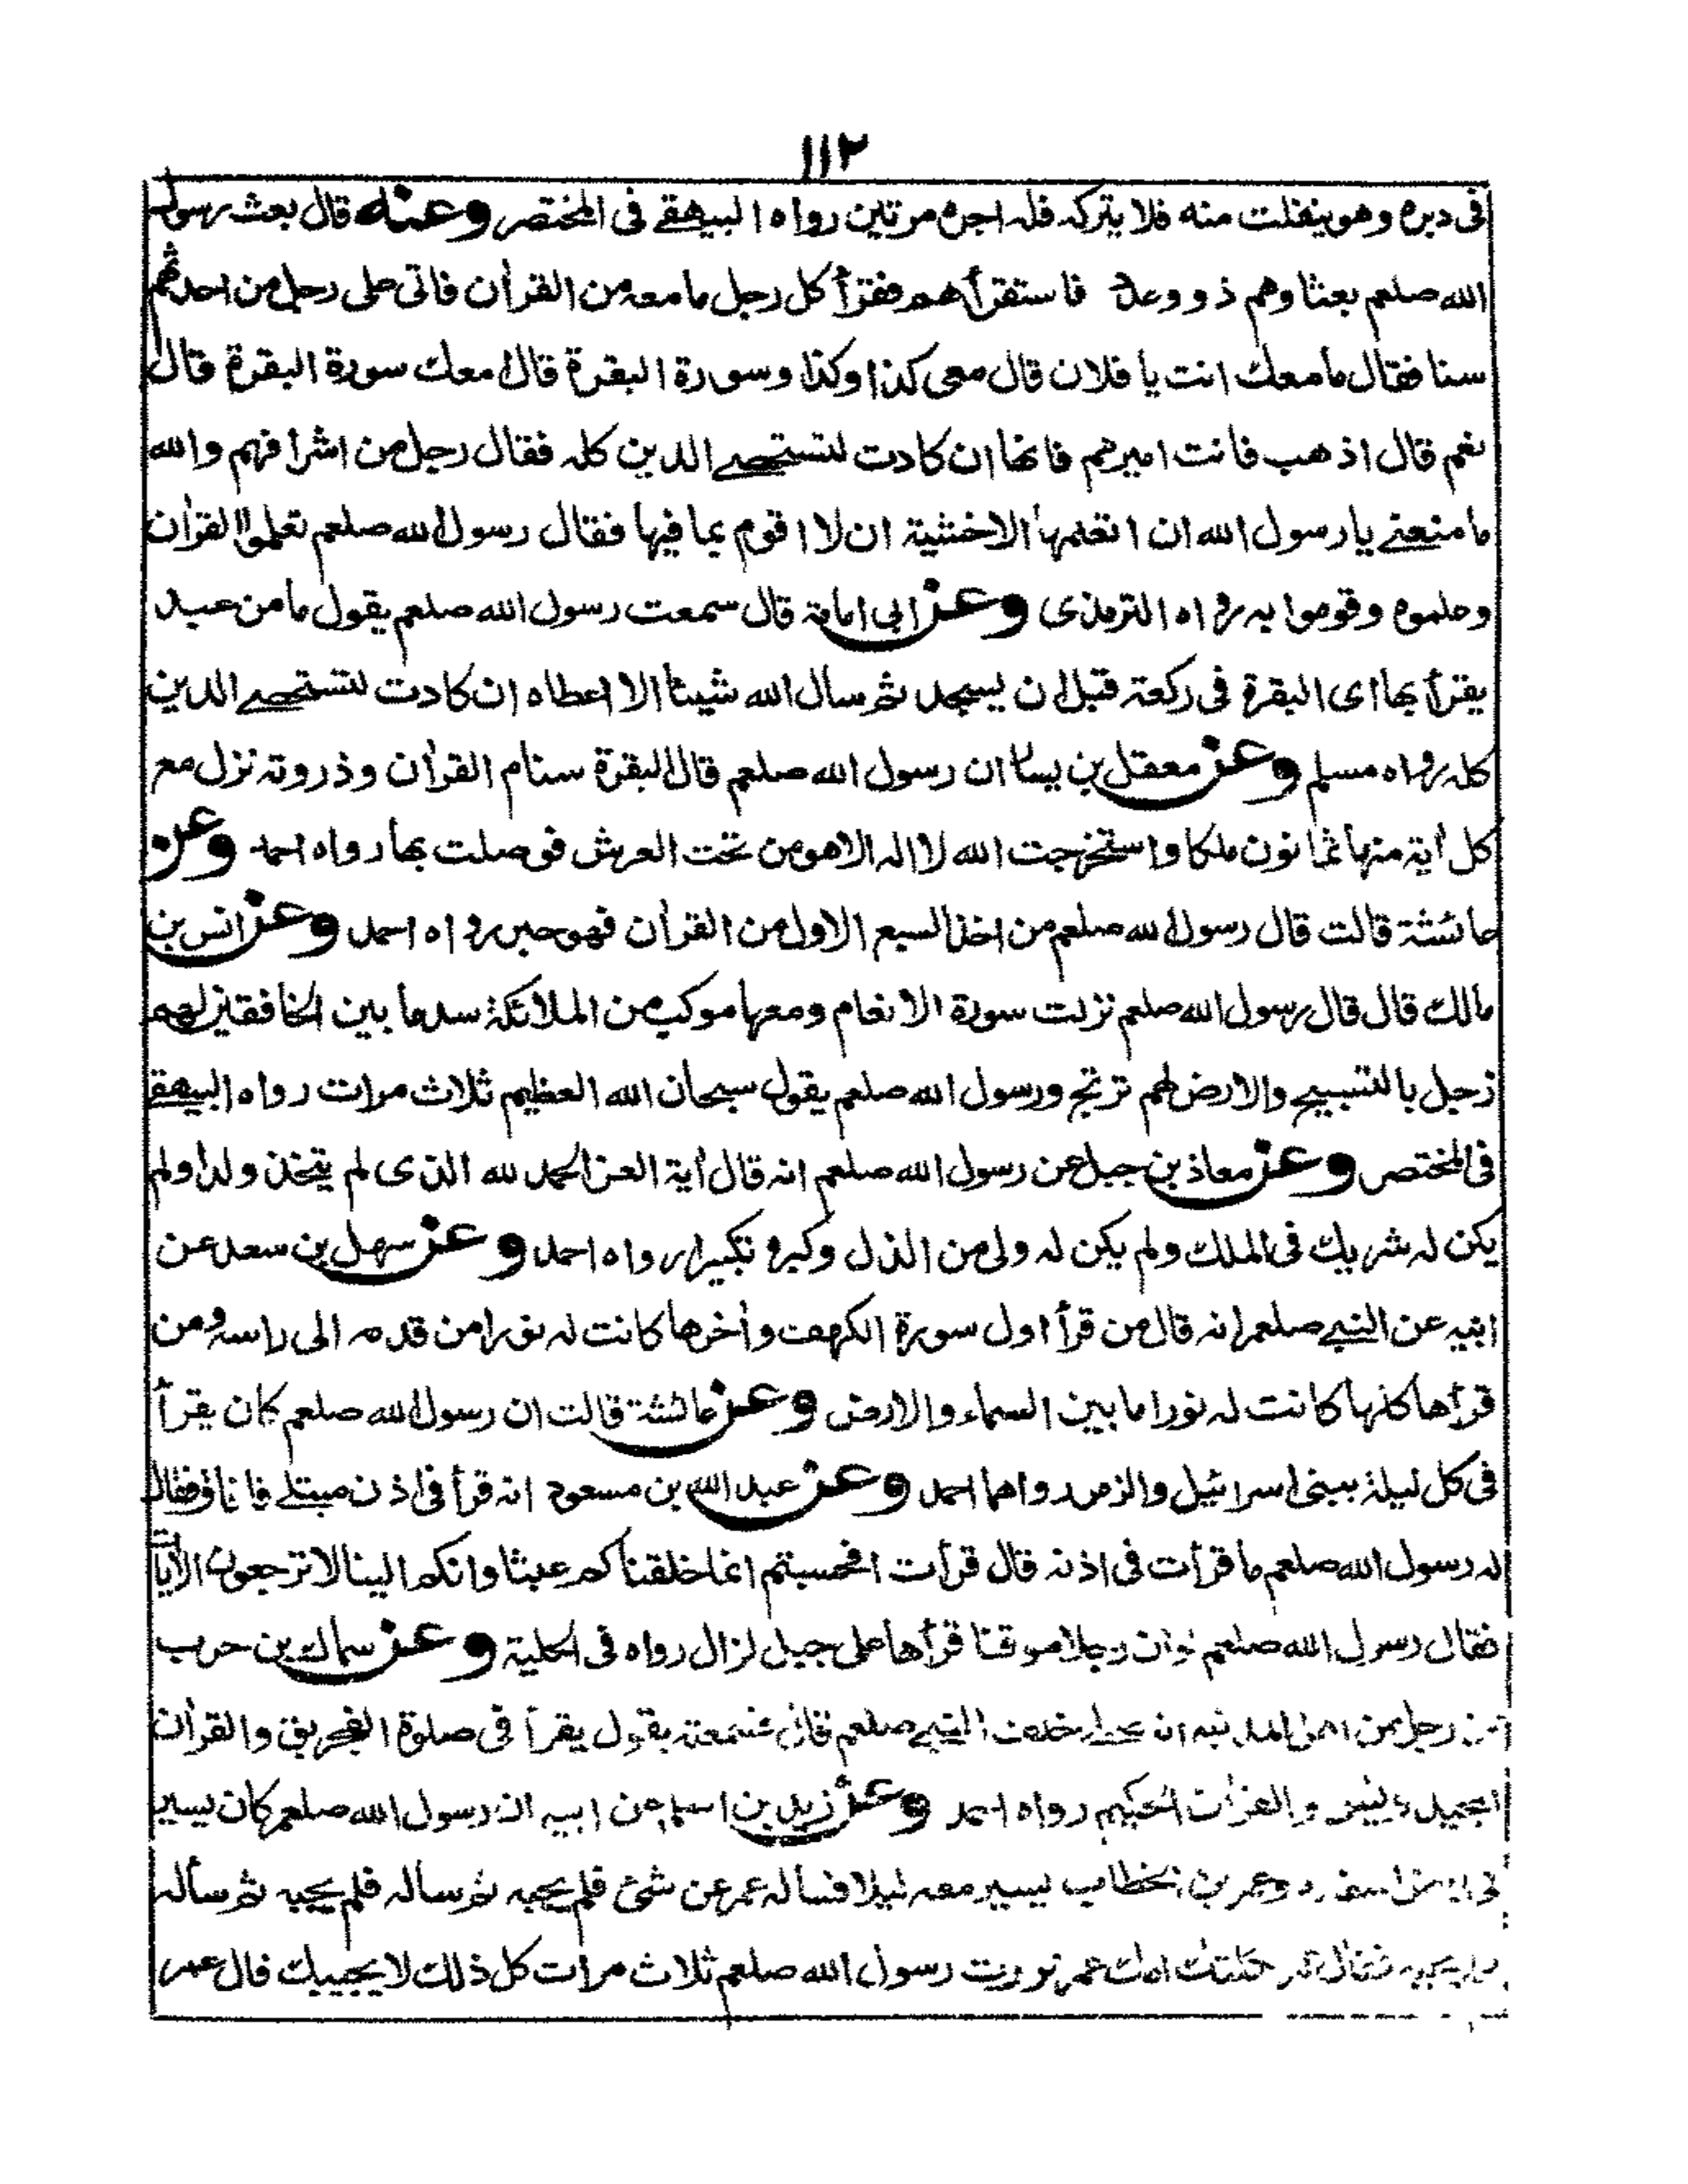 ١١٢
فى دبره وهو ينفلت منه فلا يتركه فله اجره مرتين رواه البيهقے فى المختصر وعنه قال بعث رسول
الله صلعم بعثا وهم ذوو عدد فاستقرأهم فقرأ كل رجل ما معه من القراٰن فاتى على رجل من احدثهم
سنا فقال ما معك انت يا فلان قال معى كذا وكذا وسورة البقرة قال امعك سورة البقرة قال
نعم قال اذهب فانت اميرهم فانها ان كادت لتستحصے الدين كله فقال رجل من اشرافهم والله
ما منعنے يا رسول الله ان اتعلمها الا خشية ان لا اقوم بما فيها فقال رسول الله صلعم تعلموا القراٰن
وعلموه وقوموا به رواه الترمذى وعن ابى امامة قال سمعت رسول الله صلعم يقول ما من عبد
يقرأ بها اى البقرة فى ركعة قبل ان يسجد ثم سال الله شيئا الا اعطاه ان كادت لتستحصے الدين
كله رواه مسلم وعن معقل بن يسار ان رسول الله صلعم قال البقرة سنام القراٰن وذروته نزل مع
كل اٰية منها ثمانون ملكا واستخرجت الله لا اله الا هو من تحت العرش فوصلت بها رواه احمد وعن
عائشة قالت قال رسول الله صلعم من اخذ السبع الاول من القراٰن فهو حبر رواه احمد وعن انس بن
مالك قال قال رسول الله صلعم نزلت سورة الانعام ومعها موكب من الملائكة سد ما بين الخافقين لهم
زجل بالتسبيح والارض لهم ترتج ورسول الله صلعم يقول سبحان الله العظيم ثلاث مرات رواه البيهقے
فى المختصر وعن معاذ بن جبل عن رسول الله صلعم انه قال اٰية العز الحمد لله الذى لم يتخذ ولدا ولم
يكن له شريك فى الملك ولم يكن له ولى من الذل وكبره تكبيرا رواه احمد وعن سهل بن سعد عن
ابيه عن النبے صلعم انه قال من قرأ اول سورة الكهف واٰخرها كانت له نورا من قدمه الى راسه ومن
قرأها كلها كانت له نورا ما بين السماء والارض وعن عائشة قالت ان رسول الله صلعم كان يقرأ
فى كل ليلة ببنى اسرائيل والزمر رواهما احمد وعن عبد الله بن مسعود انه قرأ فى اذن مبتلے فافاق فقال
له رسول الله صلعم ما قرأت فى اذنه قال قرأت افحسبتم انما خلقناكم عبثا وانكم الينا لا ترجعون الاٰيات
فقال رسول الله صلعم لوان رجلا موقنا قرأها على جبل لزال رواه فى الحلية وعن سماك بن حرب
عن رجل من اهل المدينه انه صلے خلف النبے صلعم فسمعته يقول يقرأ فى صلوة الفجر بق والقراٰن
المجيد ويٰس والقراٰن الحكيم رواه احمد وعن زيد بن اسلم عن ابيه ان رسول الله صلعم كان يسير
فى بعض اسفاره وعمر بن الخطاب يسير معه ليلا فساله عمر عن شئ فلم يجبه ثم ساله فلم يجبه ثم سأله
فلم يجبه فقال عمر ثكلتك امك عمر نزرت رسول الله صلعم ثلاث مرات كل ذلك لا يجيبك قال عمر